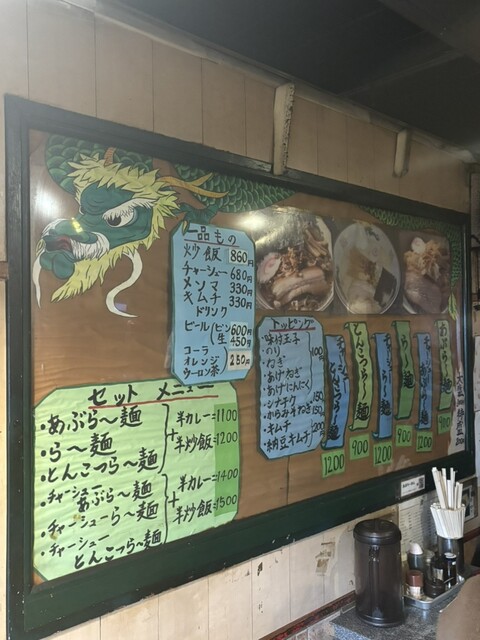 一品もの
炒飯 860円
チャーシュー 680円
メンマ 330円
キムチ 330円
ドリンク
ビール(ビン 600円
生 450円
コーラ
オレンジ 250円
ウーロン茶
トッピング
・味付玉子
・のり
・ねぎ 100
・あげねぎ
・あげにんにく
・シナチク 150
・からみネギ 150
・キムチ
・納豆キムチ 200
チャーシューとんこつら〜麺 1200
とんこつら〜麺 900
チャーシューら〜麺 1200
ら〜麺 900
チャーシューあぶら〜麺 1200
あぶら〜麺 900
セットメニュー
・あぶら〜麺
・ら〜麺
・とんこつら〜麺
+
半カレー=1100
半炒飯=1200
・チャーシューあぶら〜麺
・チャーシューら〜麺
・チャーシューとんこつら〜麺
+
半カレー=1400
半炒飯=1500